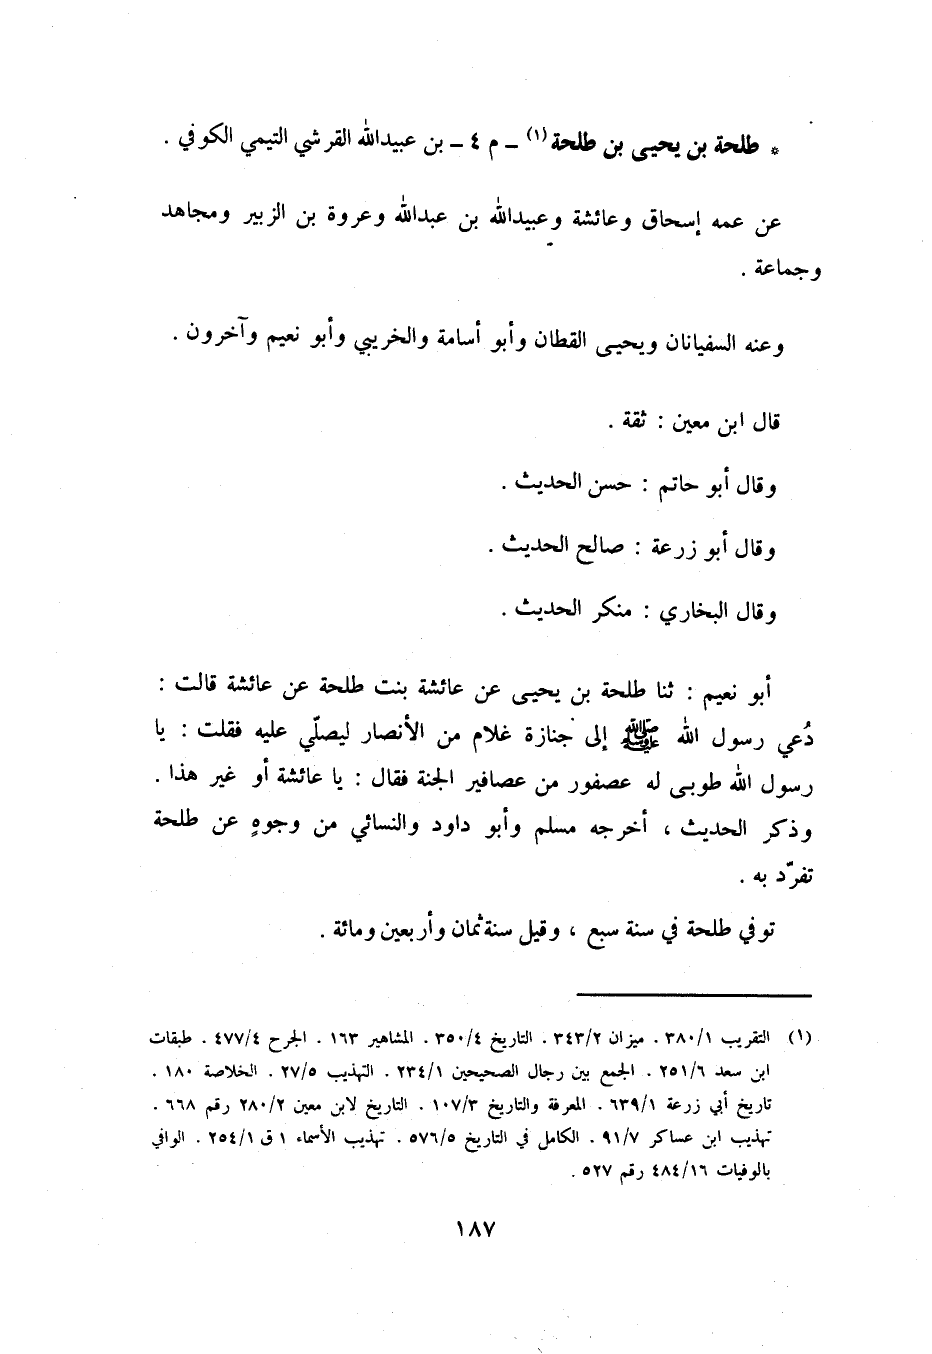 * طلحة بن يحيى بن طلحة (١) ـ م ٤ ـ بن عبيدالله القرشي التيمي الكوفي .
عن عمه إسحاق وعائشة وعبيدالله بن عبدالله وعروة بن الزبير ومجاهد
وجماعة .
وعنه السفيانان ويحيى القطان وأبو أسامة والخريبي وأبو نعيم وآخرون .
قال ابن معين : ثقة .
وقال أبو حاتم : حسن الحديث .
وقال أبو زرعة : صالح الحديث .
وقال البخاري : منكر الحديث .
أبو نعيم : ثنا طلحة بن يحيى عن عائشة بنت طلحة عن عائشة قالت :
دُعي رسول الله ﷺ إلى جنازة غلام من الأنصار ليصلّي عليه فقلت : يا
رسول الله طوبى له عصفور من عصافير الجنة فقال : يا عائشة أو غير هذا .
وذكر الحديث ، أخرجه مسلم وأبو داود والنسائي من وجوهٍ عن طلحة
تفرّد به .
توفي طلحة في سنة سبع ، وقيل سنة ثمان وأربعين ومائة .
(١) التقريب ٣٨٠/١ . ميزان ٣٤٣/٢ . التاريخ ٣٥٠/٤ . المشاهير ١٦٣ . الجرح ٤٧٧/٤ . طبقات
ابن سعد ٢٥١/٦ . الجمع بين رجال الصحيحين ٢٣٤/١ . التهذيب ٢٧/٥ . الخلاصة ١٨٠ .
تاريخ أبي زرعة ٦٣٩/١ . المعرفة والتاريخ ١٠٧/٣ . التاريخ لابن معين ٢٨٠/٢ رقم ٦٦٨ .
تهذيب ابن عساكر ٩١/٧ . الكامل في التاريخ ٥٧٦/٥ . تهذيب الأسماء ١ ق ٢٥٤/١ . الوافي
بالوفيات ٤٨٤/١٦ رقم ٥٢٧ .
١٨٧